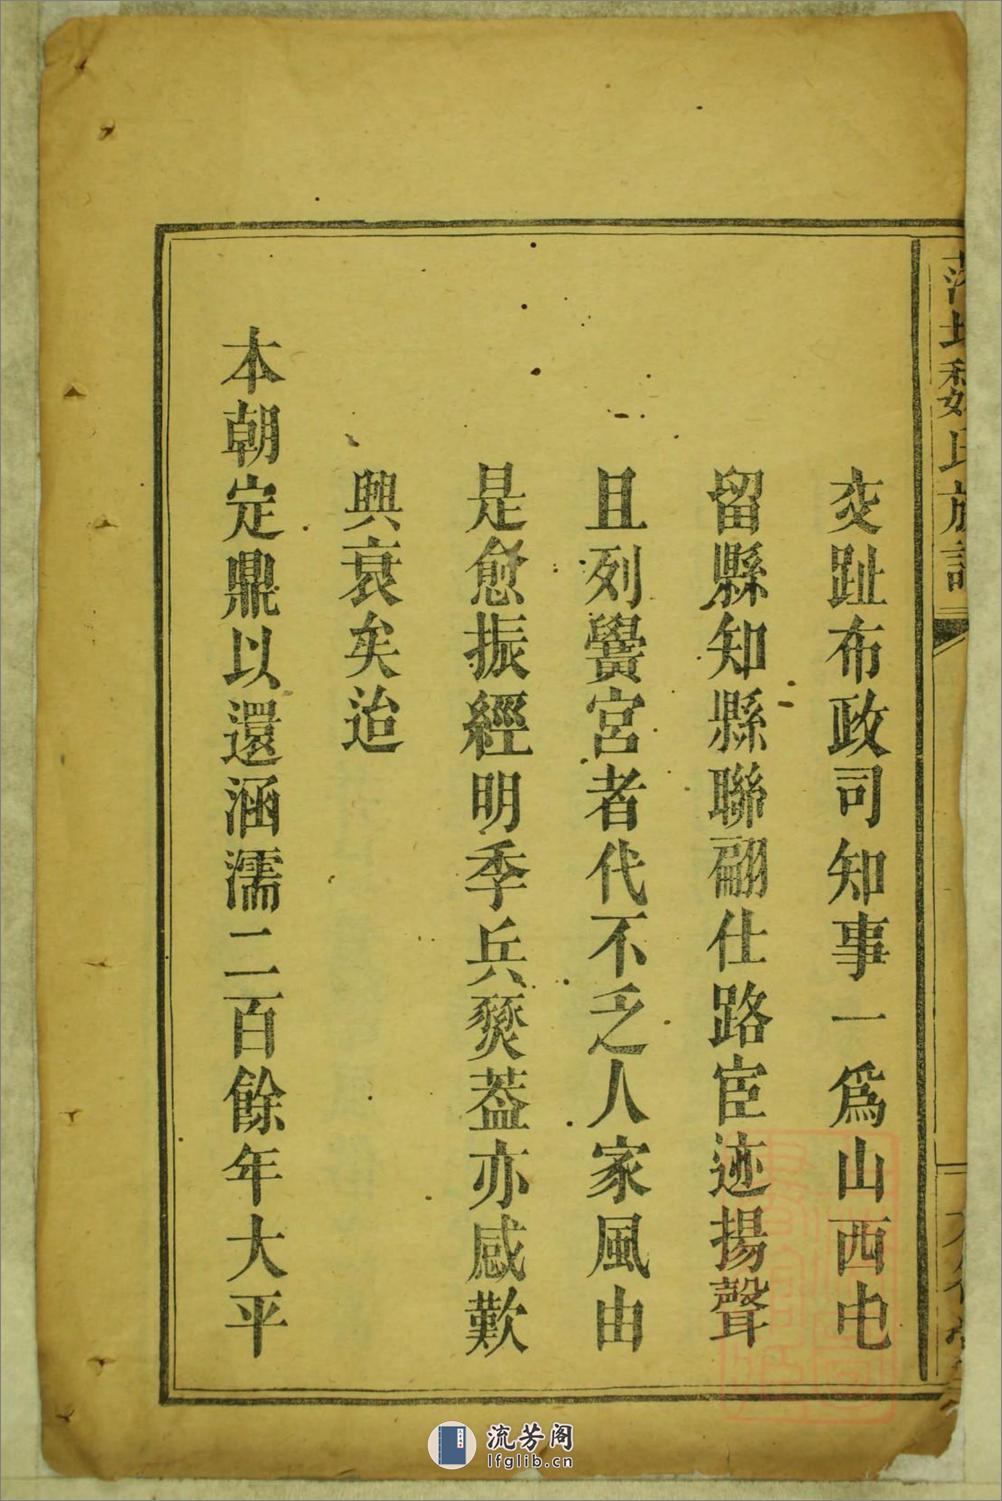 魏氏族
交趾布政司知事一爲山西屯
留縣知縣聯翩仕路宦迹揚聲
且列黌宮者代不乏人家風由
是愈振經明季兵燹葢亦感歎
興衰矣迨
本朝定鼎以還涵濡二百餘年大平
流芳阁
lfglib.cn